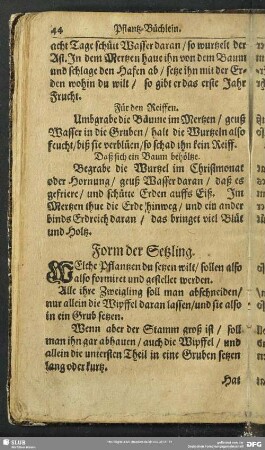 44 Pflantz-Büchlein.
acht Tage schüt Wasser daran / so wurtzelt der
Ast. Jn dem Mertzen haue ihn von dem Baum
und schlage den Hafen ab / setze ihn mit der Er-
den wohin du wilt / so gibt er das erste Jahr
Frucht.
Für den Reiffen.
Umbgrabe die Bäume im Mertzen / geuß
Wasser in die Gruben / halt die Wurtzeln also
feucht / biß sie verblüen / so schad ihn kein Reiff.
Daß sich ein Baum beholtze.
Begrabe die Wurtzel im Christmonat
oder Hornung / geuß Wasser daran / daß es
gefriere / und schütte Erden auffs Eiß. Jm
Mertzen thue die Erde hinweg / und ein ander
binds Erdreich daran / das bringet viel Blüt
und Holtz.
Form der Setzling.
WElche Pflantzen du setzen wilt / sollen also
also formiret und gestellet werden.
Alle ihre Zweigling soll man abschneiden /
nur allein die Wipffel daran lassen / und sie also
in ein Grub setzen.
Wenn aber der Stamm groß ist / soll
man ihn gar abhauen / auch die Wipffel / und
allein die untersten Theil in eine Gruben setzen
lang oder kurtz.
Hat
SLUB
DFG